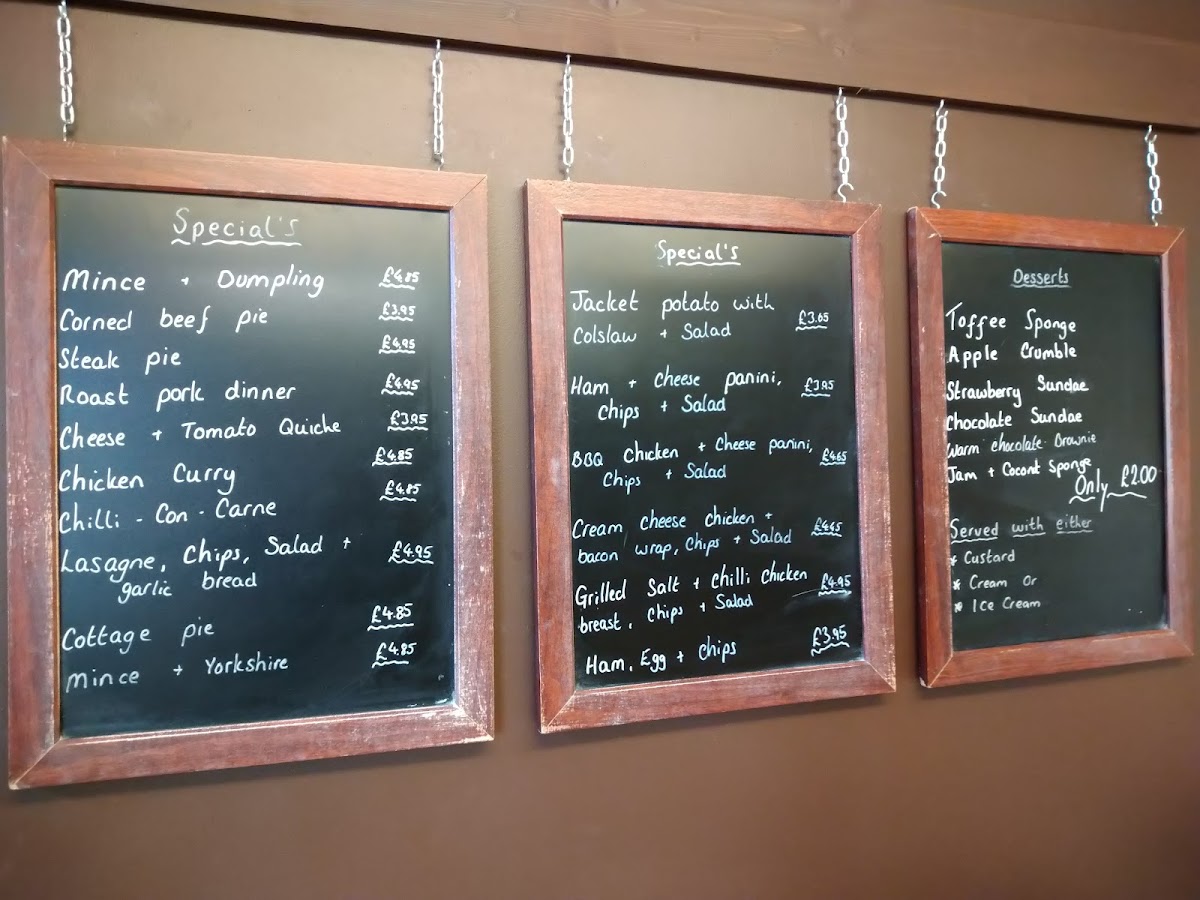 Special's
Mince + Dumpling £4.85
Corned beef pie £3.95
Steak pie £4.95
Roast pork dinner £4.95
Cheese + Tomato Quiche £3.95
Chicken Curry £4.85
Chilli - Con - Carne £4.85
Lasagne, Chips, Salad + £4.95
garlic bread
Cottage pie £4.85
mince + Yorkshire £4.85
Special's
Jacket potato with
Colslaw + Salad £3.65
Ham + cheese panini, £3.95
chips + Salad
BBQ Chicken + Cheese panini, £4.65
Chips + Salad
Cream cheese chicken + £4.45
bacon wrap, Chips + Salad
Grilled Salt + chilli chicken £4.95
breast, chips + Salad
Ham, Egg + chips £3.95
Desserts
Toffee Sponge
Apple Crumble
Strawberry Sundae
Chocolate Sundae
Warm chocolate Brownie
Jam + Coconut Sponge
Only £2.00
Served with either
* Custard
* Cream Or
* Ice Cream